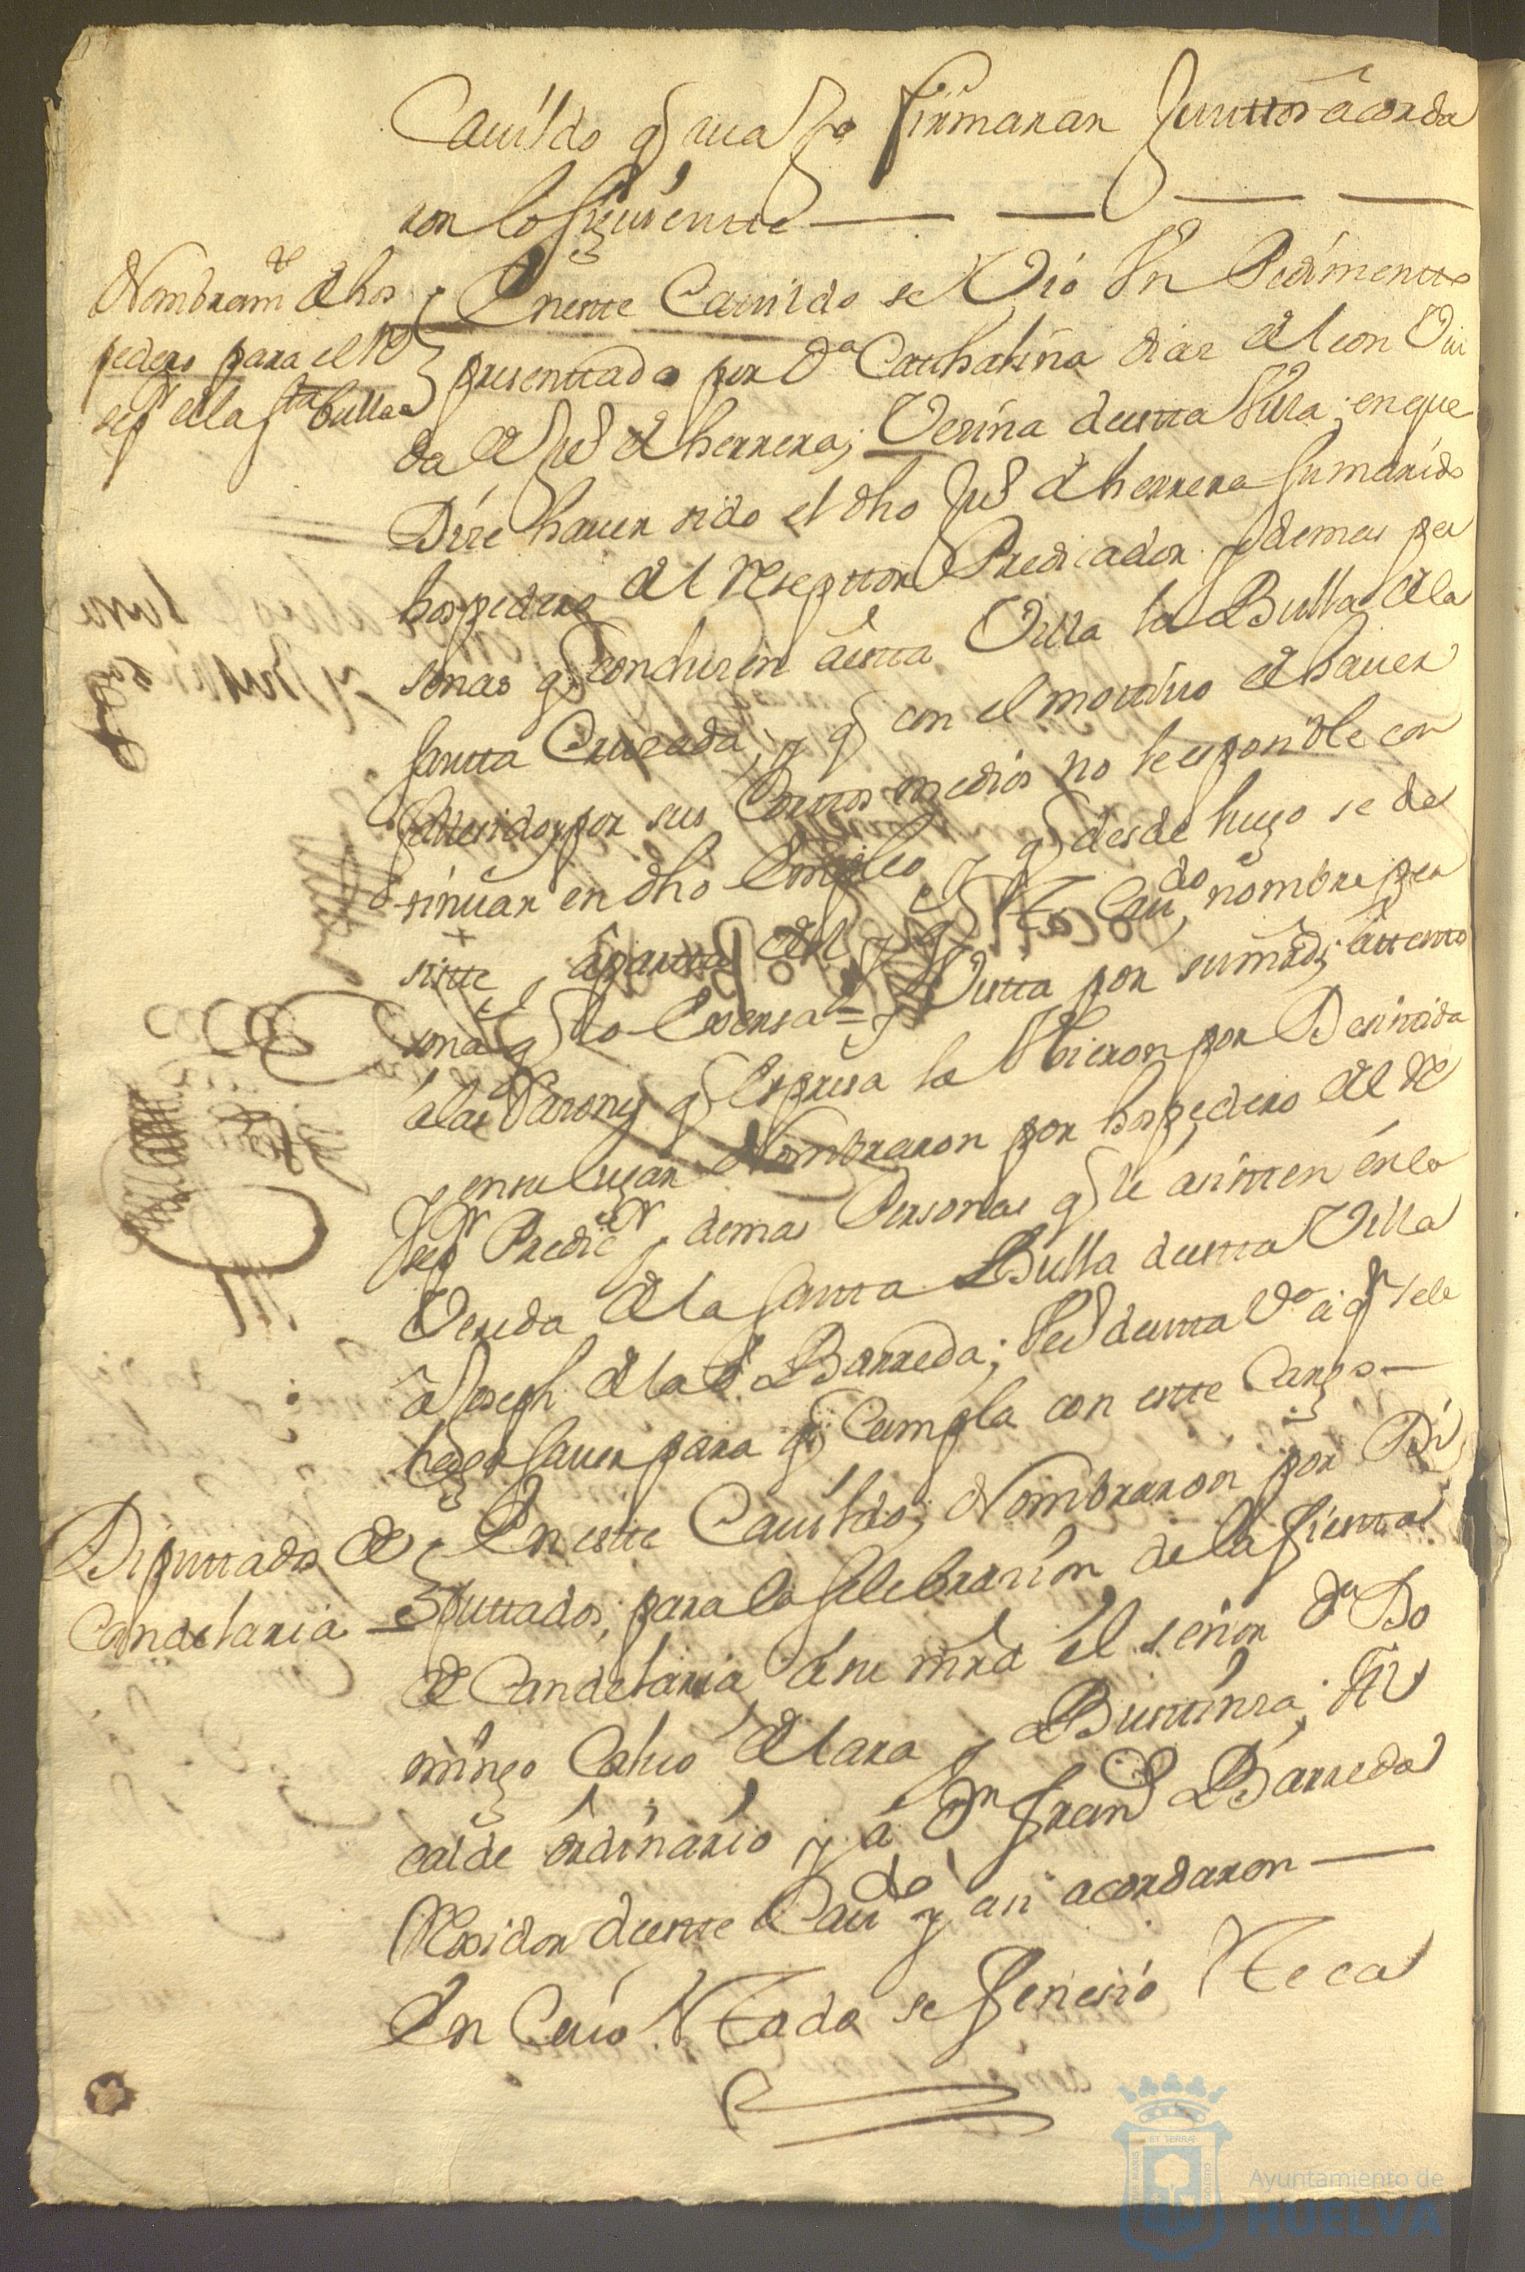 Cauildo q aua Jo firmaran Junttos acorda
ron lo siguiente
Nombram.to de hos
pedero para el Re
sep.r de la s.ta bulla
En este Cauildo se Vio Un Pedimentto
presenttado por D.a Catthalina diaz de leon Viu
da de Ju.o de herrera; Vezina de estta Villa; en que
Dize hauer sido el dho Ju.o de herrera su marido
hospedero del Reseptor Predicador y demas per
sonas q conduzen a estta Villa la Bulla de la
Santta Cruzada; y q con el mottiuo de hauer
fallesido y por sus Corttos medios no le es posible con
tinuar en dho Empleo y q desde luego se de
siste y apartta del y q este Cau.do nombre per
sona q lo Exersa = y Vistta por sus mrds; attento
a las Razones q Expresa la Vbieron por Desistida
y en su lugar Nombraron por hospedero del Re
sep.r Predic.r y demas Personas q le asisten en la
Vereda de la Santta Bulla de estta Villa
a Joseph de la Barreda; Vez.o de estta V.a a q.n se le
haga sauer para q Cumpla con estte Cargo
Diputtados de
Candelaria
En estte Cauildo; Nombraron por Di
puttados; para la Selebrazion de la fiestta
de Candelaria a su mrd el señor D.n Do
mingo Caluo de lara y Bustinza; Al
calde ordinario y a D.n Fran.co Barreda
Rexidor de estte Cau.do y asi acordaron
En Cuio Estado se fenesio Este ca
Ayuntamiento de
HUELVA